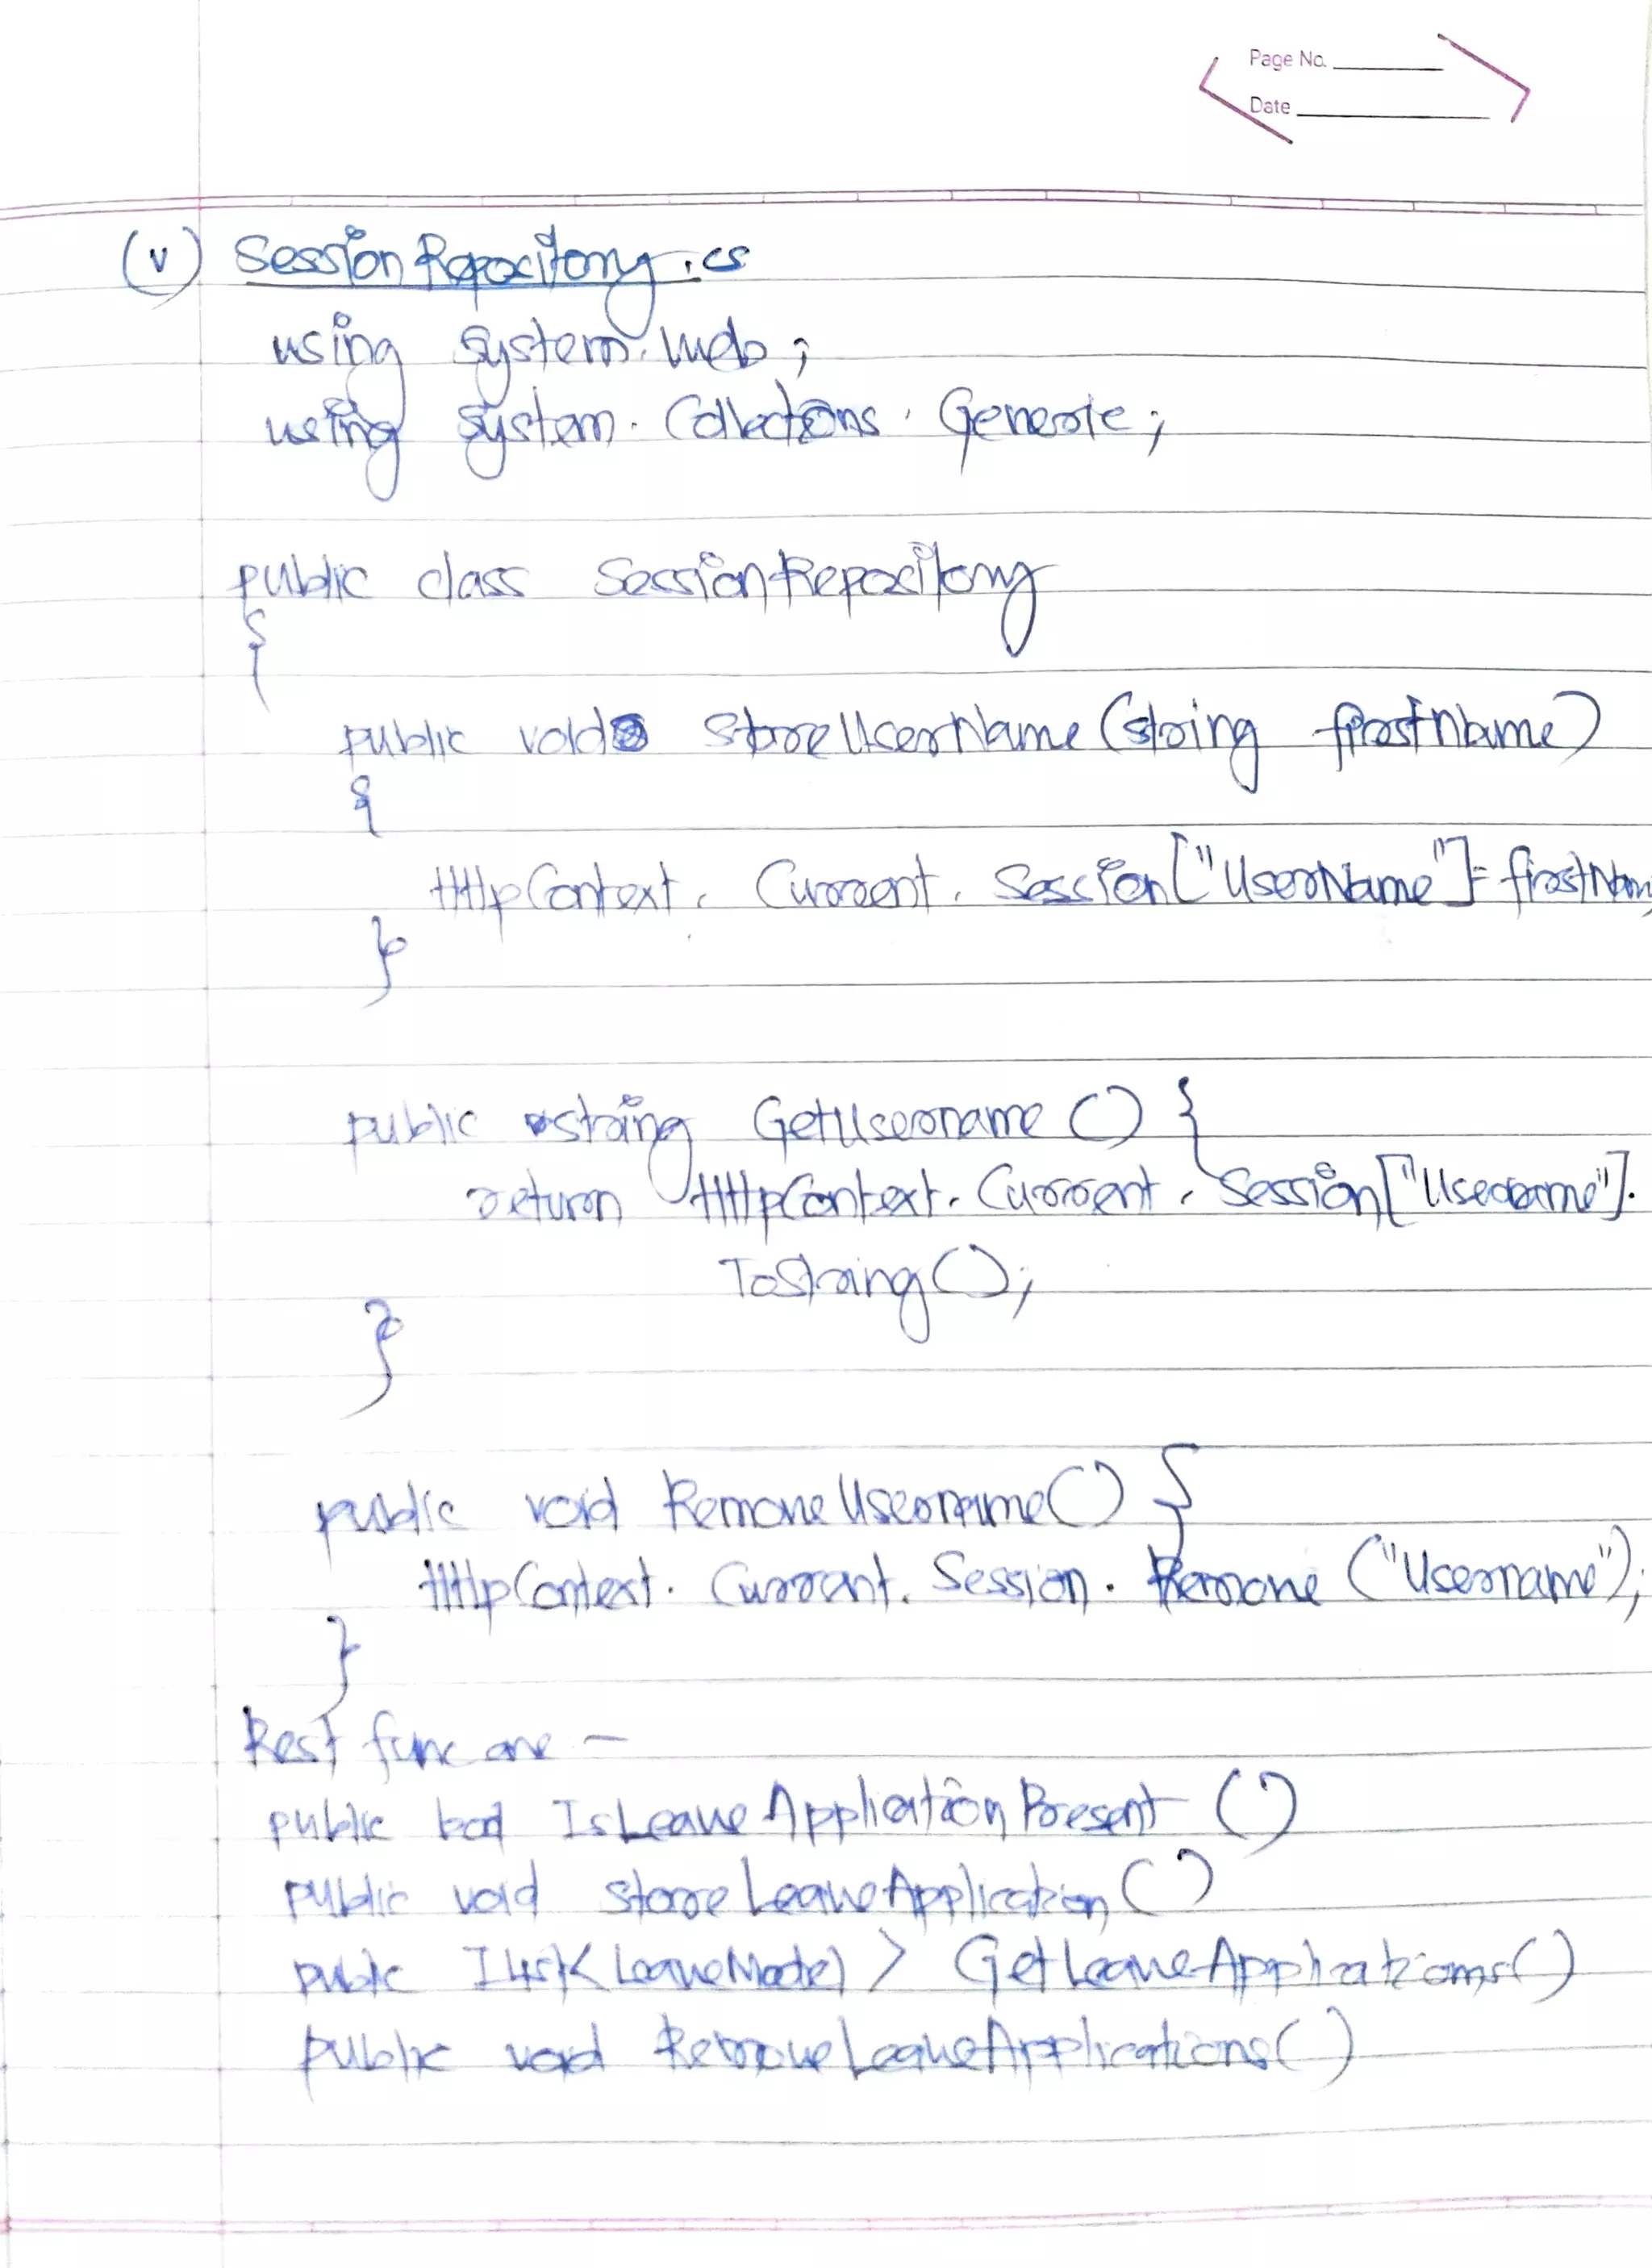 Page No.
Date
(v) SessionRepository.cs
using System.Web;
using System.Collections.Generic;
public class SessionRepository
{
public void StoreUserName(string firstName)
{
HttpContext.Current.Session["UserName"]= firstNam
}
public string GetUsername() {
return HttpContext.Current.Session["Username"].
ToString();
}
public void RemoveUsername() {
HttpContext.Current.Session.Remove("Username");
}
Rest func are -
public bool IsLeaveApplicationPresent()
public void storeLeaveApplication()
public IList<LeaveModel> GetLeaveApplications()
public void RemoveLeaveApplications()